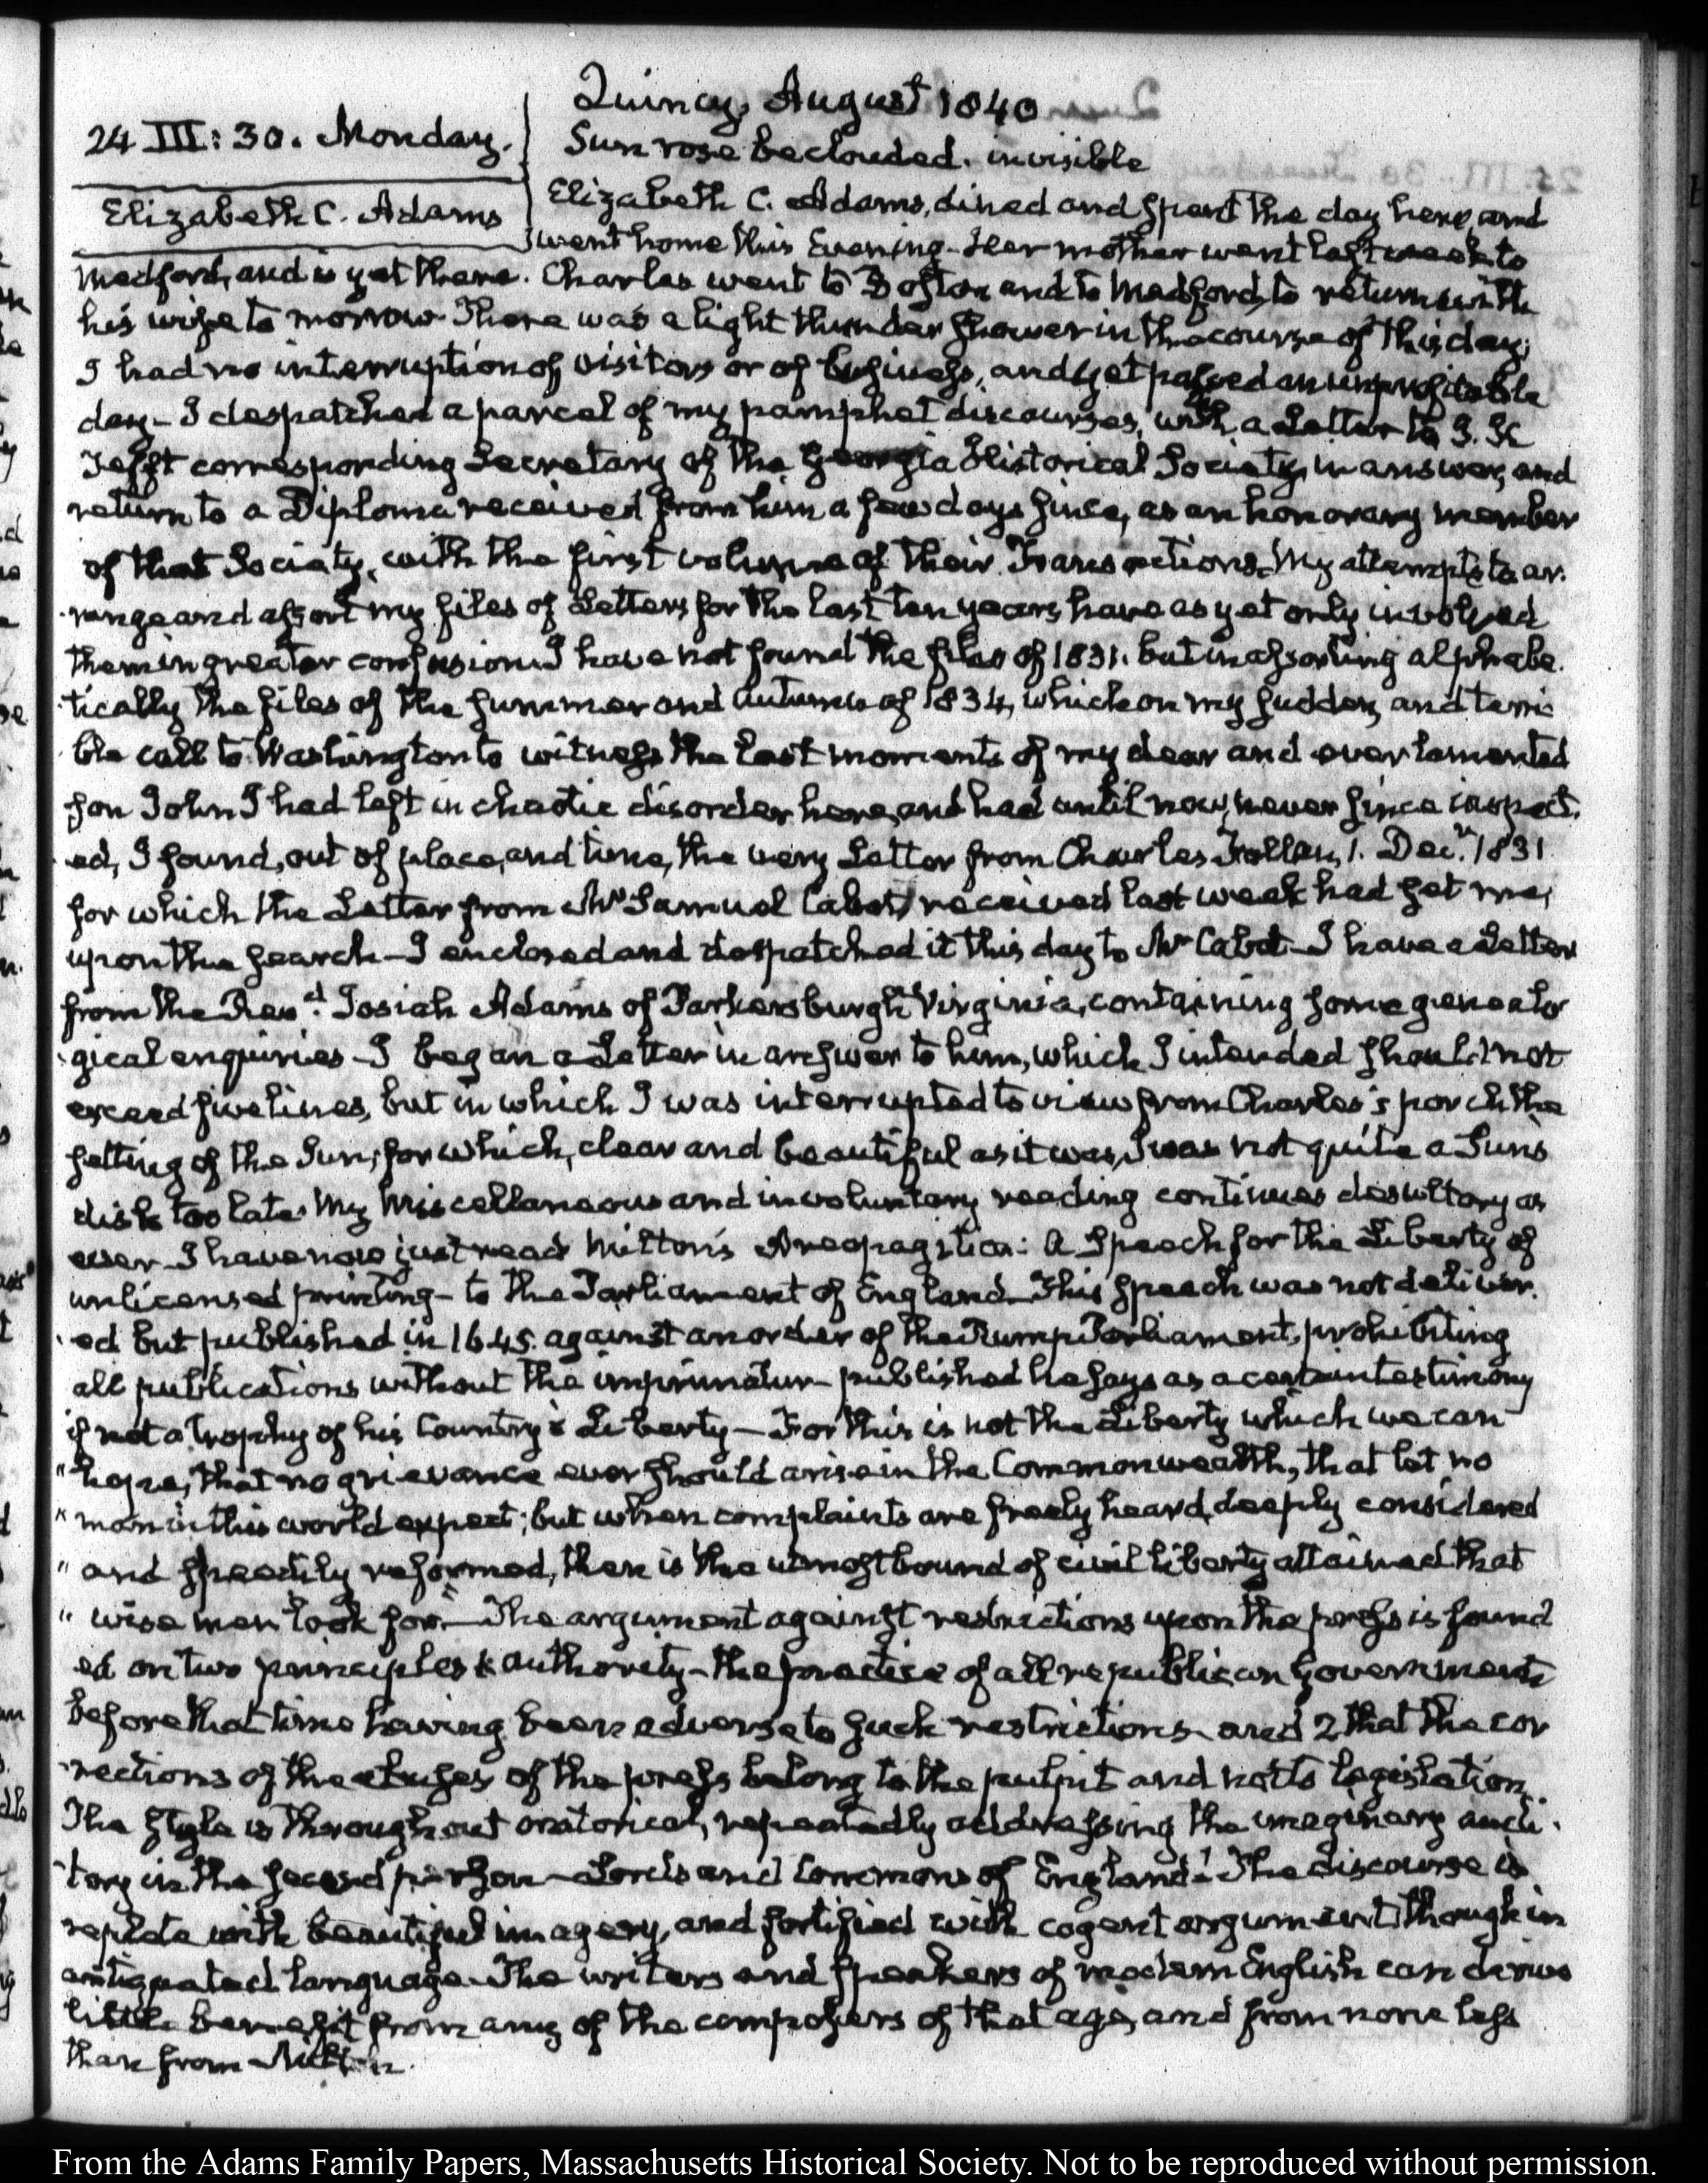 Quincy, August 1840
24 III: 30. Monday.
Sun rose beclouded. invisible
Elizabeth C. Adams
Elizabeth C. Adams, dined and spent the day here, and
went home this Evening. Her mother went last week to
Medford, and is yet there. Charles went to Boston and to Medford, to return with
his wife to morrow. There was a light thunder shower in the course of this day;
I had no interruption of visitors or of business, and yet passed an unprofitable
day. I despatched a parcel of my pamphet discourses, with a Letter to I. K
Tefft corresponding Secretary of the Georgia Historical Society, in answer, and
return to a Diploma received from him a few days since, as an honorary member
of that Society, with the first volume of their Transactions. My attempts to ar-
range and assort my files of Letters for the last ten years, have as yet only involved
them in greater confusion. I have not found the files of 1831. but in assorting alphabe-
tically the files of the summer and autumn of 1834, which on my sudden, and terri-
ble call to Washington to witness the last moments of my dear and ever lamented
son John I had left in chaotic disorder here, and had until now, never since inspect-
ed, I found, out of place, and time, the very Letter from Charles Follen, 1. Decr. 1831
for which the Letter from Mr Samuel Cabot, received last week had set me,
upon the search—I enclosed and despatched it this day to Mr Cabot—I have a Letter
from the Revd. Josiah Adams of Parkersburgh Virginia, containing some genealo-
gical enquiries—I began a Letter in answer to him, which I intended should not
exceed five lines, but in which I was interrupted to view from Charles's porch the
setting of the Sun; for which, clear and beautiful as it was, I was not quite a Sun's
disk too late. My Miscellaneous and involuntary reading continues desultory as
ever. I have now just read Milton's Areopagitica: A Speech for the Liberty of
unlicensed printing—to the Parliament of England—This Speech was not deliver-
ed but published in 1645. against an order of the Rump Parliament, prohibiting
all publications without the imprimatur—published he says as a certain testimony
if not a trophy of his Country's Liberty—For this is not the Liberty which we can
" hope, that no grievance ever should arise in the Commonwealth, that let no
" man in this world expect; but when complaints are freely heard, deeply considered
" and speedily reformed, then is the utmost bound of civil liberty attained that
" wise men look for."—The argument against restrictions upon the press is found-
ed on two principles authority—the practice of all republican Governments
before that time having been adverse to such restrictions and 2 that the cor-
rections of the abuses of the press belong to the pulpit and not to legislation.
The style is throughout oratorical, repeatedly addressing the imaginary audi-
tory in the second person—Lords and Commons of England! The discourse is
replete with beautiful imagery, and fortified with cogent argument, though in
antiquated language. The writers and speakers of modern English can derive
little benefit from any of the composers of that age, and from none less
than from Milton.
From the Adams Family Papers, Massachusetts Historical Society. Not to be reproduced without permission.